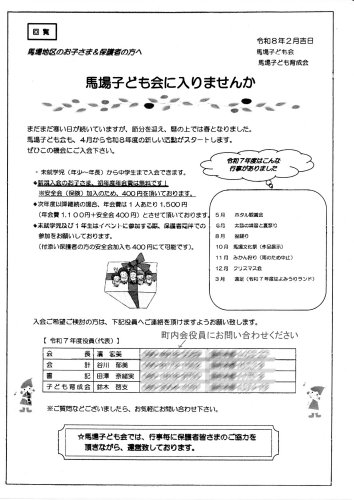 回覧
令和８年２月吉日
馬場地区のお子さま＆保護者の方へ
馬場子ども会
馬場子ども育成会
馬場子ども会に入りませんか
まだまだ寒い日が続いていますが、節分を迎え、暦の上では春となりました。
馬場子ども会も、４月から令和８年度の新しい活動がスタートします。
ぜひこの機会にご入会下さい。
・未就学児（年少～年長）から中学生まで入会できます。
●新規入会のお子さま、初年度年会費は無料です！
※安全会（保険）加入のため、400円を頂いております。
●次年度以降継続の場合、年会費は１人あたり1,500円
（年会費１,１００円＋安全会４００円）とさせて頂いております。
●未就学児及び１年生はイベントに参加する際、保護者同伴での
参加をお願いしております。
（付添い保護者の方の安全会加入も400円にて可能です。）
令和７年度はこんな
行事がありました
５月 ホタル観議会
６月 太鼓の練習と夏祭り
８月 盆踊り
１０月 馬場文化祭（作品展示）
１１月 みかん狩り（雨のため中止）
１２月 クリスマス会
３月 遠足（令和７年度はよみうりランド）
入会ご希望ご検討の方は、下記役員へご連絡を頂けますようお願い致します。
町内会役員にお問い合わせください
【 令和７年度役員（代表）】
会長 濱 宏美
会計 谷川 郁美
書記 田澤 奈緒実
子ども育成会 鈴木 啓支
※ご質問などございましたら、お気軽にお問い合わせ下さい。
☆馬場子ども会では、行事毎に保護者皆さまのご協力を
頂きながら、運営致しております。